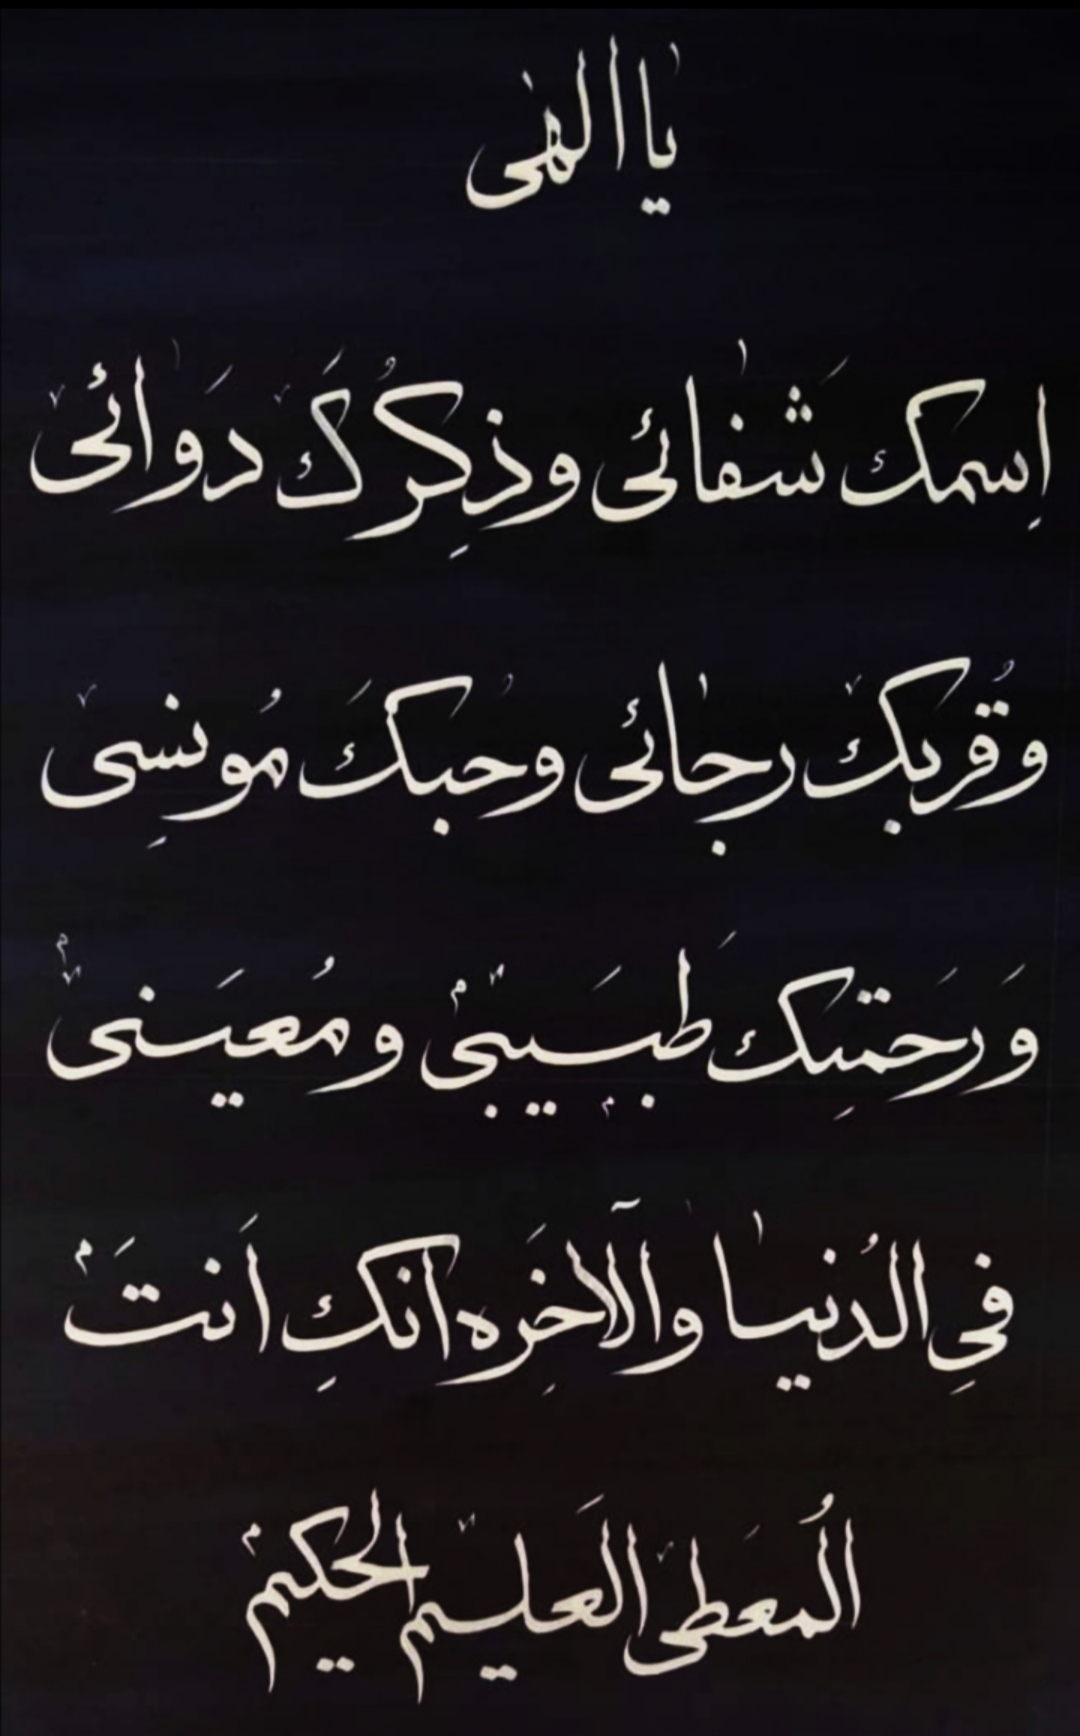 يا الهى
اِسمك شَفائى وذِكرُكَ دَوائى
وقُربك رجائى وحُبكَ مُونسِى
وَرَحمتِك طَبَيبى ومُعيَنى
فىِ الدُنيا والآخِرَه انكِ اَنتَ
المُعطى العَليم الحكيم